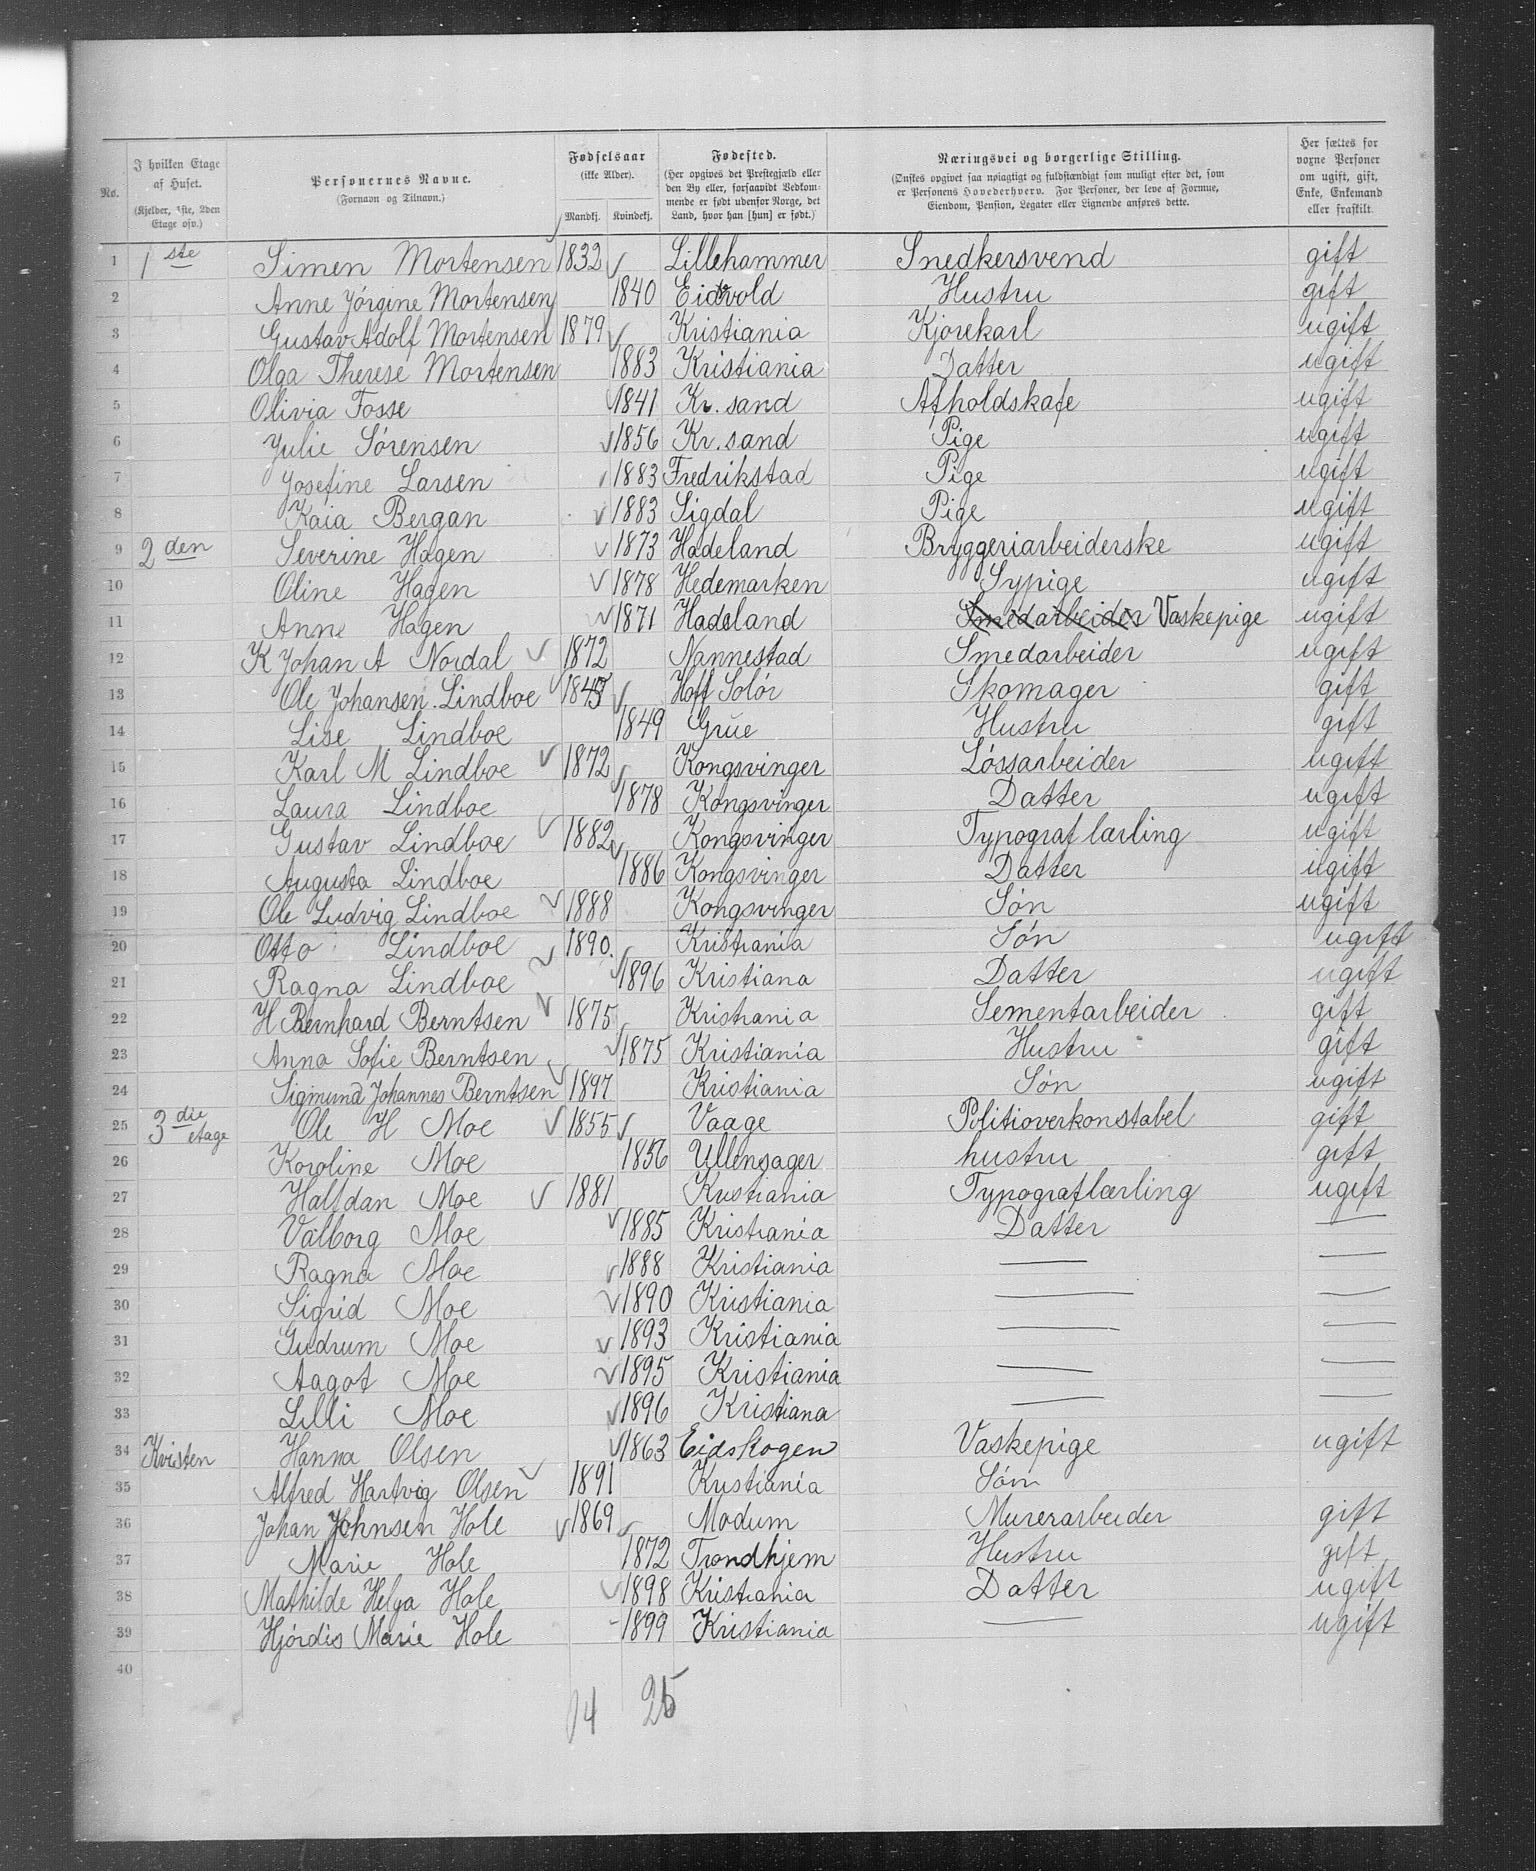 No.
I hvilken Etage af Huset.
(Kjelder, 1ste, 2den Etage osv.)
Personernes Navne.
(Fornavn og Tilnavn.)
Fødselsaar
(ikke Alder).
Mandkj. Kvindekj.
Fødested.
(Her opgives det Prestegjæld eller den By eller, forsaavidt Vedkommende er født udenfor Norge, det Land, hvor han [hun] er født.)
Næringsvei og borgerlige Stilling.
(Ønskes opgivet saa nøiagtigt og fuldstændigt som muligt efter det, som er Personens Hovederhverv. For Personer, der leve af Formue, Eiendom, Pension, Legater eller Lignende anføres dette.
Her sættes for voxne Personer om ugift, gift, Enke, Enkemand eller fraskilt.
1 1ste Simen Mortensen 1832 Lillehammer Snedkersvend gift
2 Anne Jørgine Mortensen 1840 Eidsvold Hustru gift
3 Gustav Adolf Mortensen 1879 Kristiania Kjørekarl ugift
4 Olga Therese Mortensen 1883 Kristiania Datter ugift
5 Olivia Fosse 1841 Kr. sand Afholdskafe ugift
6 Julie Sørensen 1856 Kr. sand Pige ugift
7 Josefine Larsen 1883 Fredrikstad Pige ugift
8 Kaia Bergan 1883 Sigdal Pige ugift
9 2den Severine Hagen 1873 Hadeland Bryggeriarbeiderske ugift
10 Oline Hagen 1878 Hedemarken Sypige ugift
11 Anne Hagen 1871 Hadeland Smedarbeider Vaskepige ugift
12 K Johan A Nordal 1872 Nannestad Smedarbeider ugift
13 Ole Johansen. Lindboe 1845 Hoff Solør Skomager gift
14 Lise Lindboe 1849 Grue Hustru gift
15 Karl M Lindboe 1872 Kongsvinger Løssarbeider ugift
16 Laura Lindboe 1878 Kongsvinger Datter ugift
17 Gustav Lindboe 1882 Kongsvinger Typograf lærling ugift
18 Augusta Lindboe 1886 Kongsvinger Datter ugift
19 Ole Ludvig Lindboe 1888 Kongsvinger Søn ugift
20 Otto Lindboe 1890. Kristiania Søn ugift
21 Ragna Lindboe 1896 Kristiana Datter ugift
22 H Bernhard Berntsen 1875 Kristiania Sementarbeider gift
23 Anna Sofie Berntsen 1875 Kristiania Hustru gift
24 Sigmund Johannes Berntsen 1897 Kristiania Søn ugift
25 3die etage Ole H Moe 1855 Vaage Politioverkonstabel gift
26 Karoline Moe 1856 Ullensager hustru gift
27 Halfdan Moe 1881 Kristiania Typograflærling ugift
28 Valborg Moe 1885 Kristiania Datter —
29 Ragna Moe 1888 Kristiania — —
30 Sigrid Moe 1890 Kristiania — —
31 Gudrum Moe 1893 Kristiania — —
32 Aagot Moe 1895 Kristiania — —
33 Lilli Moe 1896 Kristiana — —
34 Kvisten Hanna Olsen 1863 Eidskogen Vaskepige ugift
35 Alfred Hartvig Olsen 1891 Kristiania Søn
36 Johan Johnsen Hole 1869 Modum Murerarbeider gift
37 Marie Hole 1872 Trondhjem Hustru gift
38 Mathilde Helga Hole 1898 Kristiania Datter ugift
39 Hjørdis Marie Hole 1899 Kristiania — ugift
40
14 25